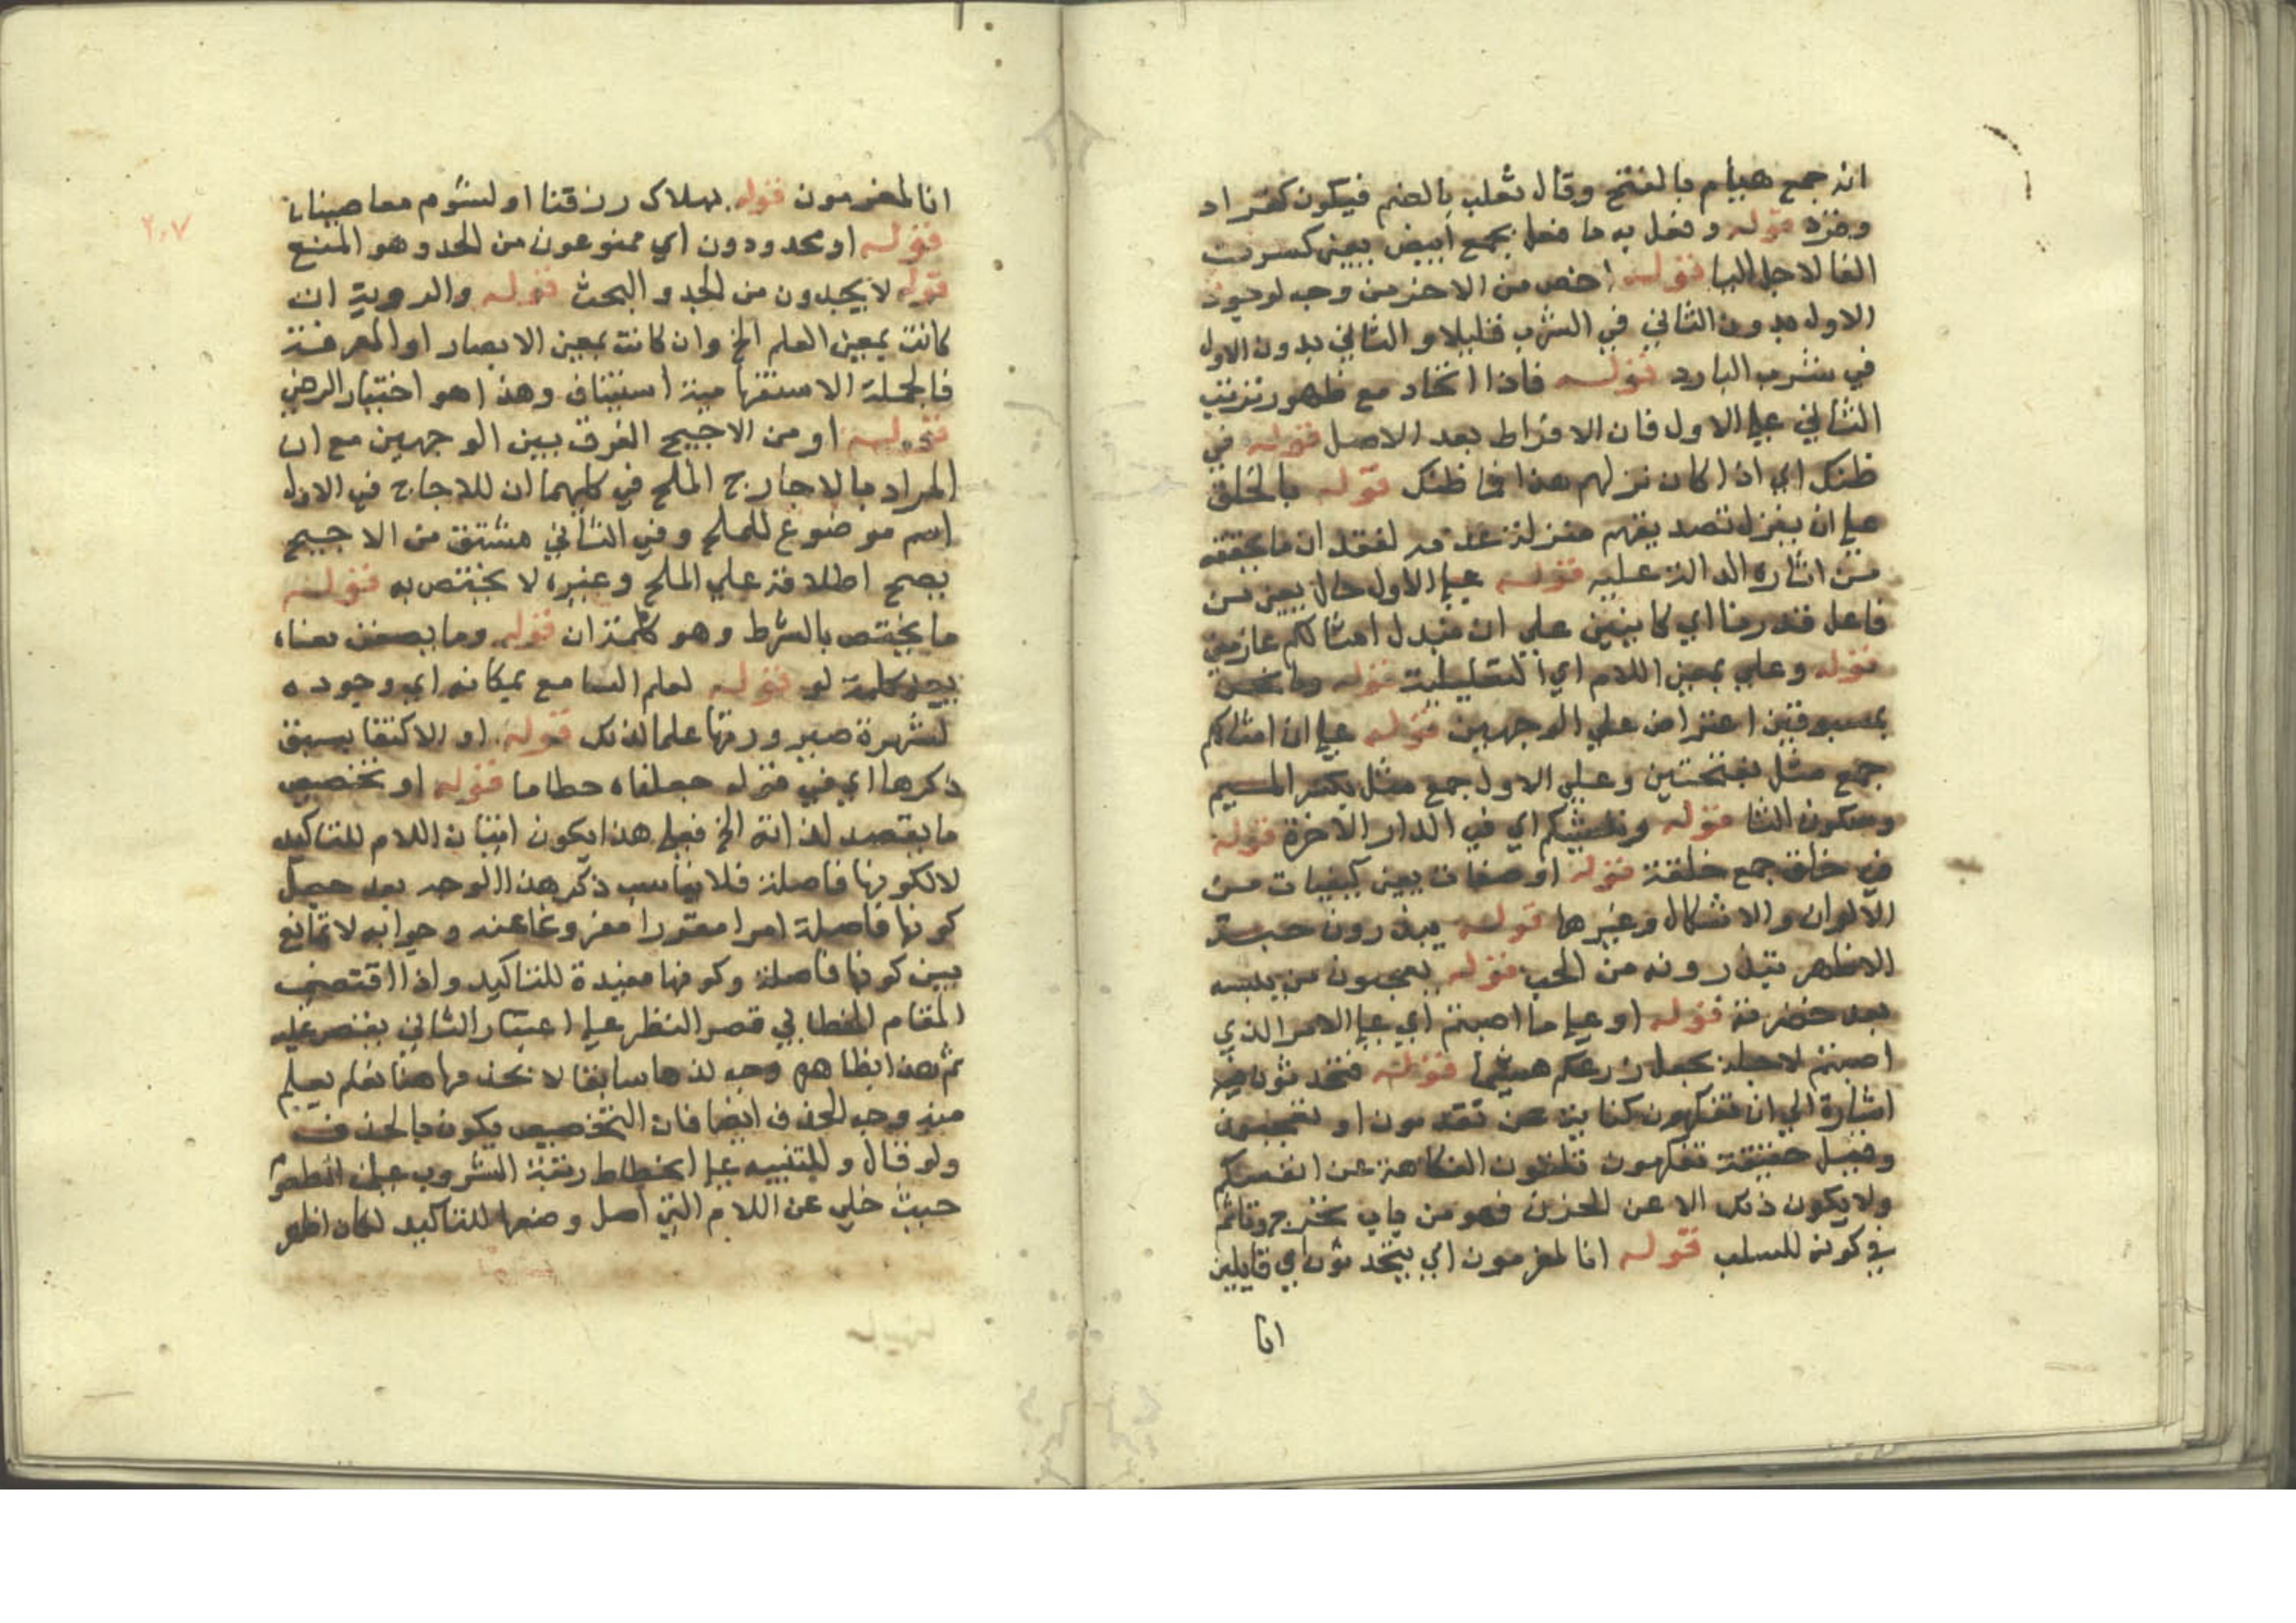 انه جمع هيام بالفتح وقال ثعلب بالضم فيكون كقراد
وقرد قوله وفعل به ما فعل بجمع أبيض يعني كسرت
الفا لاجل اليا قوله اخص من الاخر من وجه لوجود
الاول بدون الثاني في الشرب قليلا والثاني بدون الاول
في شرب البارد قوله فاذا اتحاد مع ظهور ترتب
الثاني علي الاول فان الافراط بعد الاصل قوله في
ظنك اي اذا كان نزلهم هذا فما ظنك قوله بالخلق
علي ان ينزل تصديقهم منزلة عدمه لفقدان ما يحققه
من اثاره الدالة عليه قوله علي الاول حال يعني من
فاعل قدرنا اي كاينين علي ان نبدل امثالكم عازمين
قوله وعلي بمعني اللام اي التعليلية قوله وما نحن
بمسبوقين اعتراض علي الوجهين قوله علي ان امثالكم
جمع مثل بفتحتين وعلي الاول جمع مثل بكسر الميم
وسكون الثا قوله وننشئكم اي في الدار الاخرة قوله
في خلق جمع خلقة قوله او صفات يعني كيفيات من
الالوان والاشكال وغيرها قوله يبذرون حبة
الاظهر تبذرونه من الحب قوله تعجبون من يبسه
بعد خضرته قوله او علي ما اصبتم اي علي الامر الذي
اصبتم لاجله بجعل زرعكم هشيما قوله فتتحدثون فيه
اشارة الي ان تفكهون كناية عن تندمون او تتعجبون
وقيل حقيقة تفكهون تلقون الفكاهة عن انفسكم
ولا يكون ذلك الا عن الحزن فهو من باب تحرج وتاثم
في كونه للسلب قوله انا لمغرمون اي يتحدثون اي قايلين
انا
٢٠٧
انا لمغرمون قوله بهلاك رزقنا او لشوم معاصينا
قوله او محدودون اي ممنوعون من الحد وهو المنع
قوله لا يجدون من الجد والبحث قوله والروية ان
كانت بمعني العلم الخ وان كانت بمعني الابصار او المعرفة
فالجملة الاستفهامية استيناف وهذا هو اختيار الرضي
قوله او من الاجيج الفرق بين الوجهين مع ان
المراد بالاجاج الملح في كليهما ان للاجاج في الاول
اسم موضوع للملح وفي الثاني مشتق من الاجيج
يصح اطلاقه علي الملح وغيره لا يختص به قوله
ما يختص بالشرط وهو كلمة ان قوله وما يضمن معناه
يريد كلمة لو قوله لعلم السامع بمكانه اي وجوده
لشهرة صيرورتها علما لذلك قوله او الاكتفا بسبق
ذكرها اي في قوله جعلناه حطاما قوله او تخصيص
ما يقصد لذاته الخ فعلي هذا يكون اتيان اللام للتاكيد
لا لكونها فاصلة فلا يناسب ذكر هذا الوجه بعد جعل
كونها فاصلة امرا مقررا مفروغا عنه وجوابه لا تمانع
بين كونها فاصلة وكونها مفيدة للتاكيد واذا اقتضي
المقام الخطابي قصر النظر علي اعتبار الثاني يقتصر عليه
ثم هذا بظاهره وجه لذكرها سابقا لا لحذفها هنا نعم يعلم
منه وجه الحذف ايضا فان التخصيص يكون بالحذف
ولو قال وللتنبيه علي انحطاط رتبة المشروب عن المطعوم
حيث خلي عن اللام التي اصل وضعها للتاكيد لكان اظهر